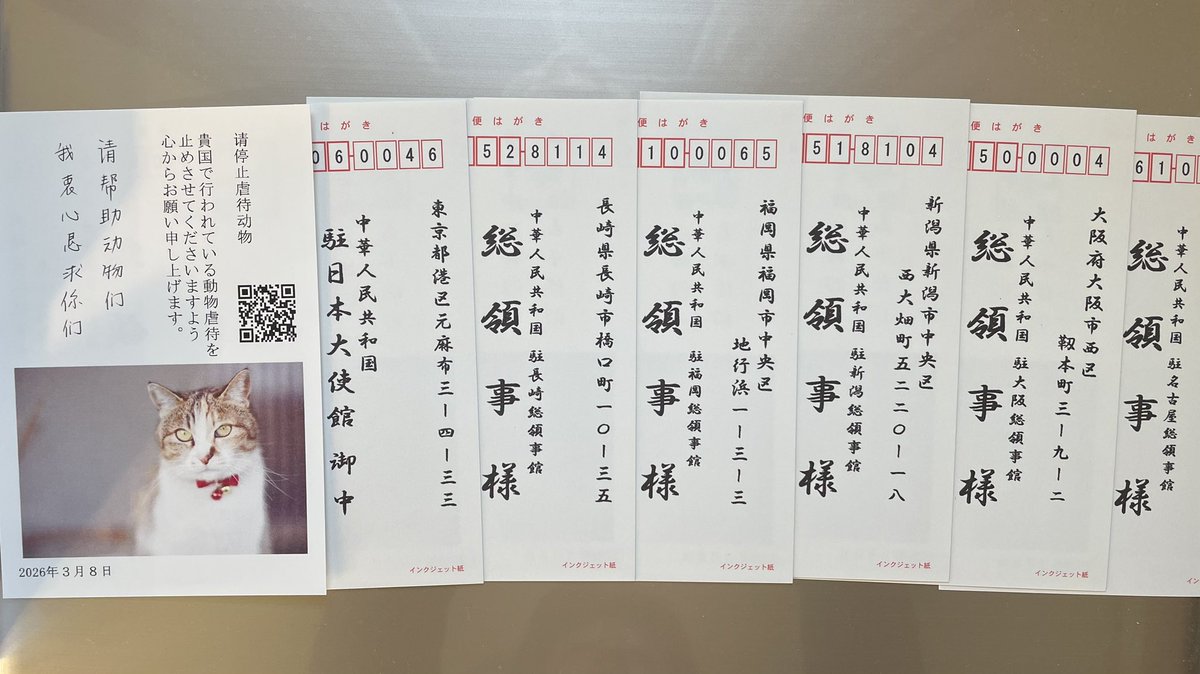 请停止虐待动物
貴国で行われている動物虐待を
止めさせてくださいますよう
心からお願い申し上げます。
请帮助动物们
我衷心恳求你们
2026年3月8日
はがき
060046
東京都港区元麻布三ー四ー三三
中華人民共和国
駐日本大使館 御中
インクジェット紙
便はがき
52-8114
長崎県長崎市橋口町一〇ー三五
中華人民共和国 駐長崎総領事館
総領事様
インクジェット紙
便はがき
10-0065
福岡県福岡市中央区
地行浜一ー三ー三
中華人民共和国 駐福岡総領事館
総領事様
インクジェット紙
便はがき
51-8104
新潟県新潟市中央区
西大畑町五二二〇ー一八
中華人民共和国 駐新潟総領事館
総領事様
インクジェット紙
便はがき
50-0004
大阪府大阪市西区
靱本町三ー九ー二
中華人民共和国 駐大阪総領事館
総領事様
インクジェット紙
便はがき
61-0
中華人民共和国 駐名古屋総領事館
総領事様
イン